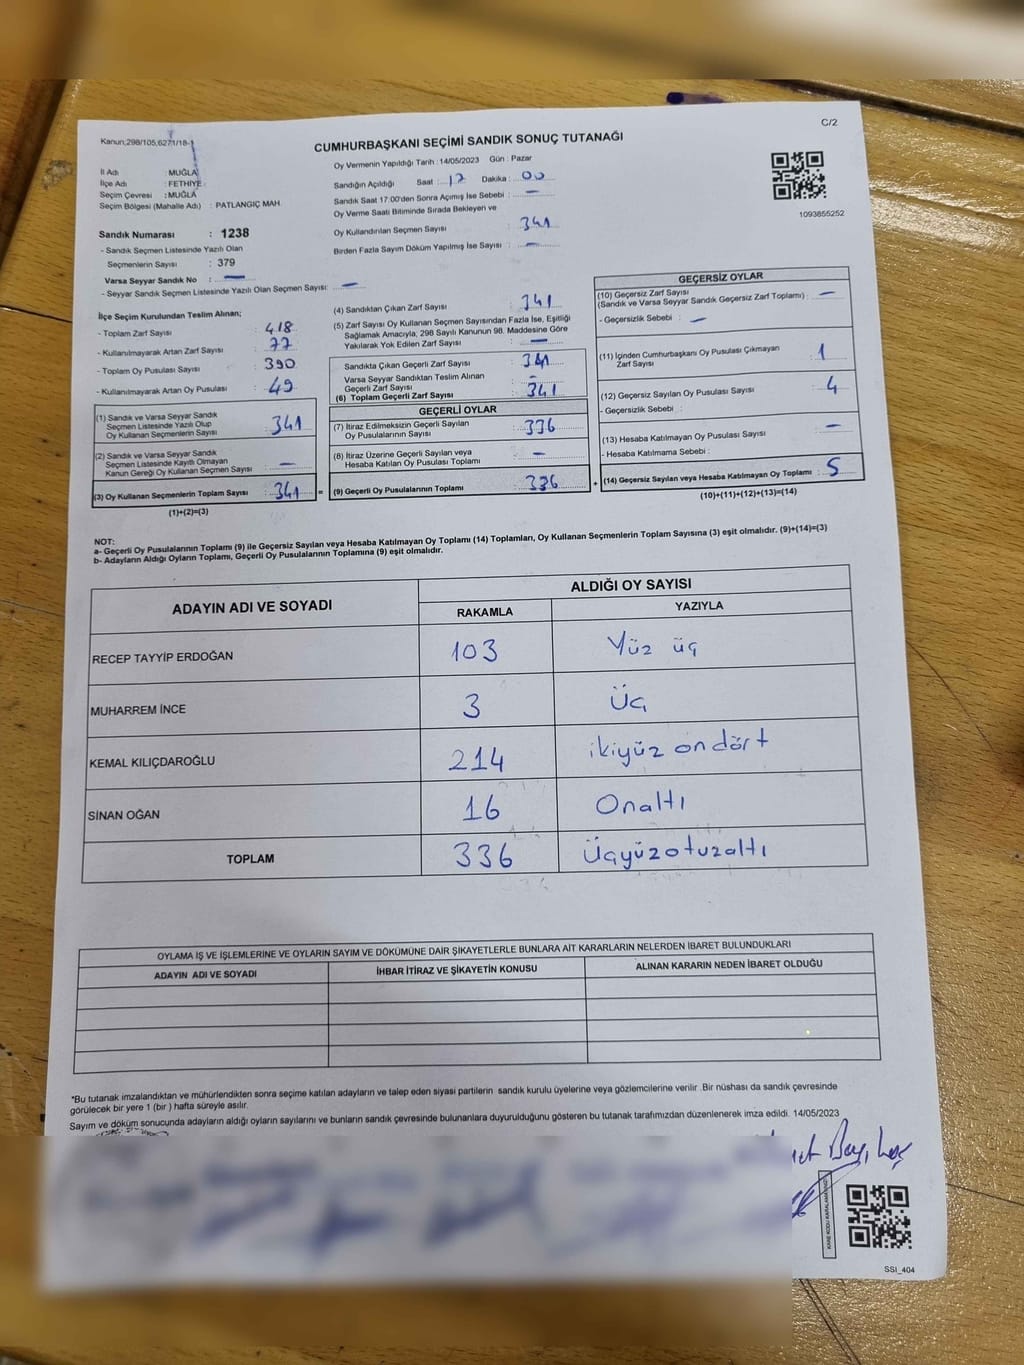 C/2
Kanun;298/105,6271/18-1
CUMHURBAŞKANI SEÇİMİ SANDIK SONUÇ TUTANAĞI
Oy Vermenin Yapıldığı Tarih : 14/05/2023 Gün : Pazar
İl Adı : MUĞLA
İlçe Adı : FETHİYE
Seçim Çevresi : MUĞLA
Seçim Bölgesi (Mahalle Adı) : PATLANGIÇ MAH.
Sandığın Açıldığı Saat : 17 Dakika : 00
Sandık Saat 17:00'den Sonra Açımış İse Sebebi : —
Oy Verme Saati Bitiminde Sırada Bekleyen ve
Oy Kullandırılan Seçmen Sayısı : 341
Birden Fazla Sayım Döküm Yapılmış İse Sayısı : —
1093855252
Sandık Numarası : 1238
- Sandık Seçmen Listesinde Yazılı Olan
Seçmenlerin Sayısı : 379
Varsa Seyyar Sandık No : —
- Seyyar Sandık Seçmen Listesinde Yazılı Olan Seçmen Sayısı: —
İlçe Seçim Kurulundan Teslim Alınan;
- Toplam Zarf Sayısı : 418
- Kullanılmayarak Artan Zarf Sayısı : 77
- Toplam Oy Pusulası Sayısı : 390
- Kullanılmayarak Artan Oy Pusulası : 49
(1) Sandık ve Varsa Seyyar Sandık
Seçmen Listesinde Yazılı Olup
Oy Kullanan Seçmenlerin Sayısı : 341
(2) Sandık ve Varsa Seyyar Sandık
Seçmen Listesinde Kayıtlı Olmayan
Kanun Gereği Oy Kullanan Seçmen Sayısı : —
(3) Oy Kullanan Seçmenlerin Toplam Sayısı : 341 =
(1)+(2)=(3)
(4) Sandıktan Çıkan Zarf Sayısı : 341
(5) Zarf Sayısı Oy Kullanan Seçmen Sayısından Fazla İse, Eşitliği
Sağlamak Amacıyla, 298 Sayılı Kanunun 98. Maddesine Göre
Yakılarak Yok Edilen Zarf Sayısı : —
Sandıkta Çıkan Geçerli Zarf Sayısı : 341
Varsa Seyyar Sandıktan Teslim Alınan
Geçerli Zarf Sayısı : —
(6) Toplam Geçerli Zarf Sayısı : 341
GEÇERLİ OYLAR
(7) İtiraz Edilmeksizin Geçerli Sayılan
Oy Pusulalarının Sayısı : 336
(8) İtiraz Üzerine Geçerli Sayılan veya
Hesaba Katılan Oy Pusulası Toplamı : —
(9) Geçerli Oy Pusulalarının Toplamı : 336 +
GEÇERSİZ OYLAR
(10) Geçersiz Zarf Sayısı
(Sandık ve Varsa Seyyar Sandık Geçersiz Zarf Toplamı) : —
- Geçersizlik Sebebi : —
(11) İçinden Cumhurbaşkanı Oy Pusulası Çıkmayan
Zarf Sayısı : 1
(12) Geçersiz Sayılan Oy Pusulası Sayısı : 4
- Geçersizlik Sebebi :
(13) Hesaba Katılmayan Oy Pusulası Sayısı : —
- Hesaba Katılmama Sebebi :
(14) Geçersiz Sayılan veya Hesaba Katılmayan Oy Toplamı : 5
(10)+(11)+(12)+(13)=(14)
NOT:
a- Geçerli Oy Pusulalarının Toplamı (9) ile Geçersiz Sayılan veya Hesaba Katılmayan Oy Toplamı (14) Toplamları, Oy Kullanan Seçmenlerin Toplam Sayısına (3) eşit olmalıdır. (9)+(14)=(3)
b- Adayların Aldığı Oyların Toplamı, Geçerli Oy Pusulalarının Toplamına (9) eşit olmalıdır.
ADAYIN ADI VE SOYADI ALDIĞI OY SAYISI
RAKAMLA YAZIYLA
RECEP TAYYİP ERDOĞAN 103 Yüz üç
MUHARREM İNCE 3 Üç
KEMAL KILIÇDAROĞLU 214 ikiyüz ondört
SİNAN OĞAN 16 Onaltı
TOPLAM 336 Üçyüzotuzaltı
OYLAMA İŞ VE İŞLEMLERİNE VE OYLARIN SAYIM VE DÖKÜMÜNE DAİR ŞİKAYETLERLE BUNLARA AİT KARARLARIN NELERDEN İBARET BULUNDUKLARI
ADAYIN ADI VE SOYADI İHBAR İTİRAZ VE ŞİKAYETİN KONUSU ALINAN KARARIN NEDEN İBARET OLDUĞU
*Bu tutanak imzalandıktan ve mühürlendikten sonra seçime katılan adayların ve talep eden siyasi partilerin sandık kurulu üyelerine veya gözlemcilerine verilir .Bir nüshası da sandık çevresinde
görülecek bir yere 1 (bir ) hafta süreyle asılır.
Sayım ve döküm sonucunda adayların aldığı oyların sayılarını ve bunların sandık çevresinde bulunanlara duyurulduğunu gösteren bu tutanak tarafımızdan düzenlenerek imza edildi. 14/05/2023
SSI_404